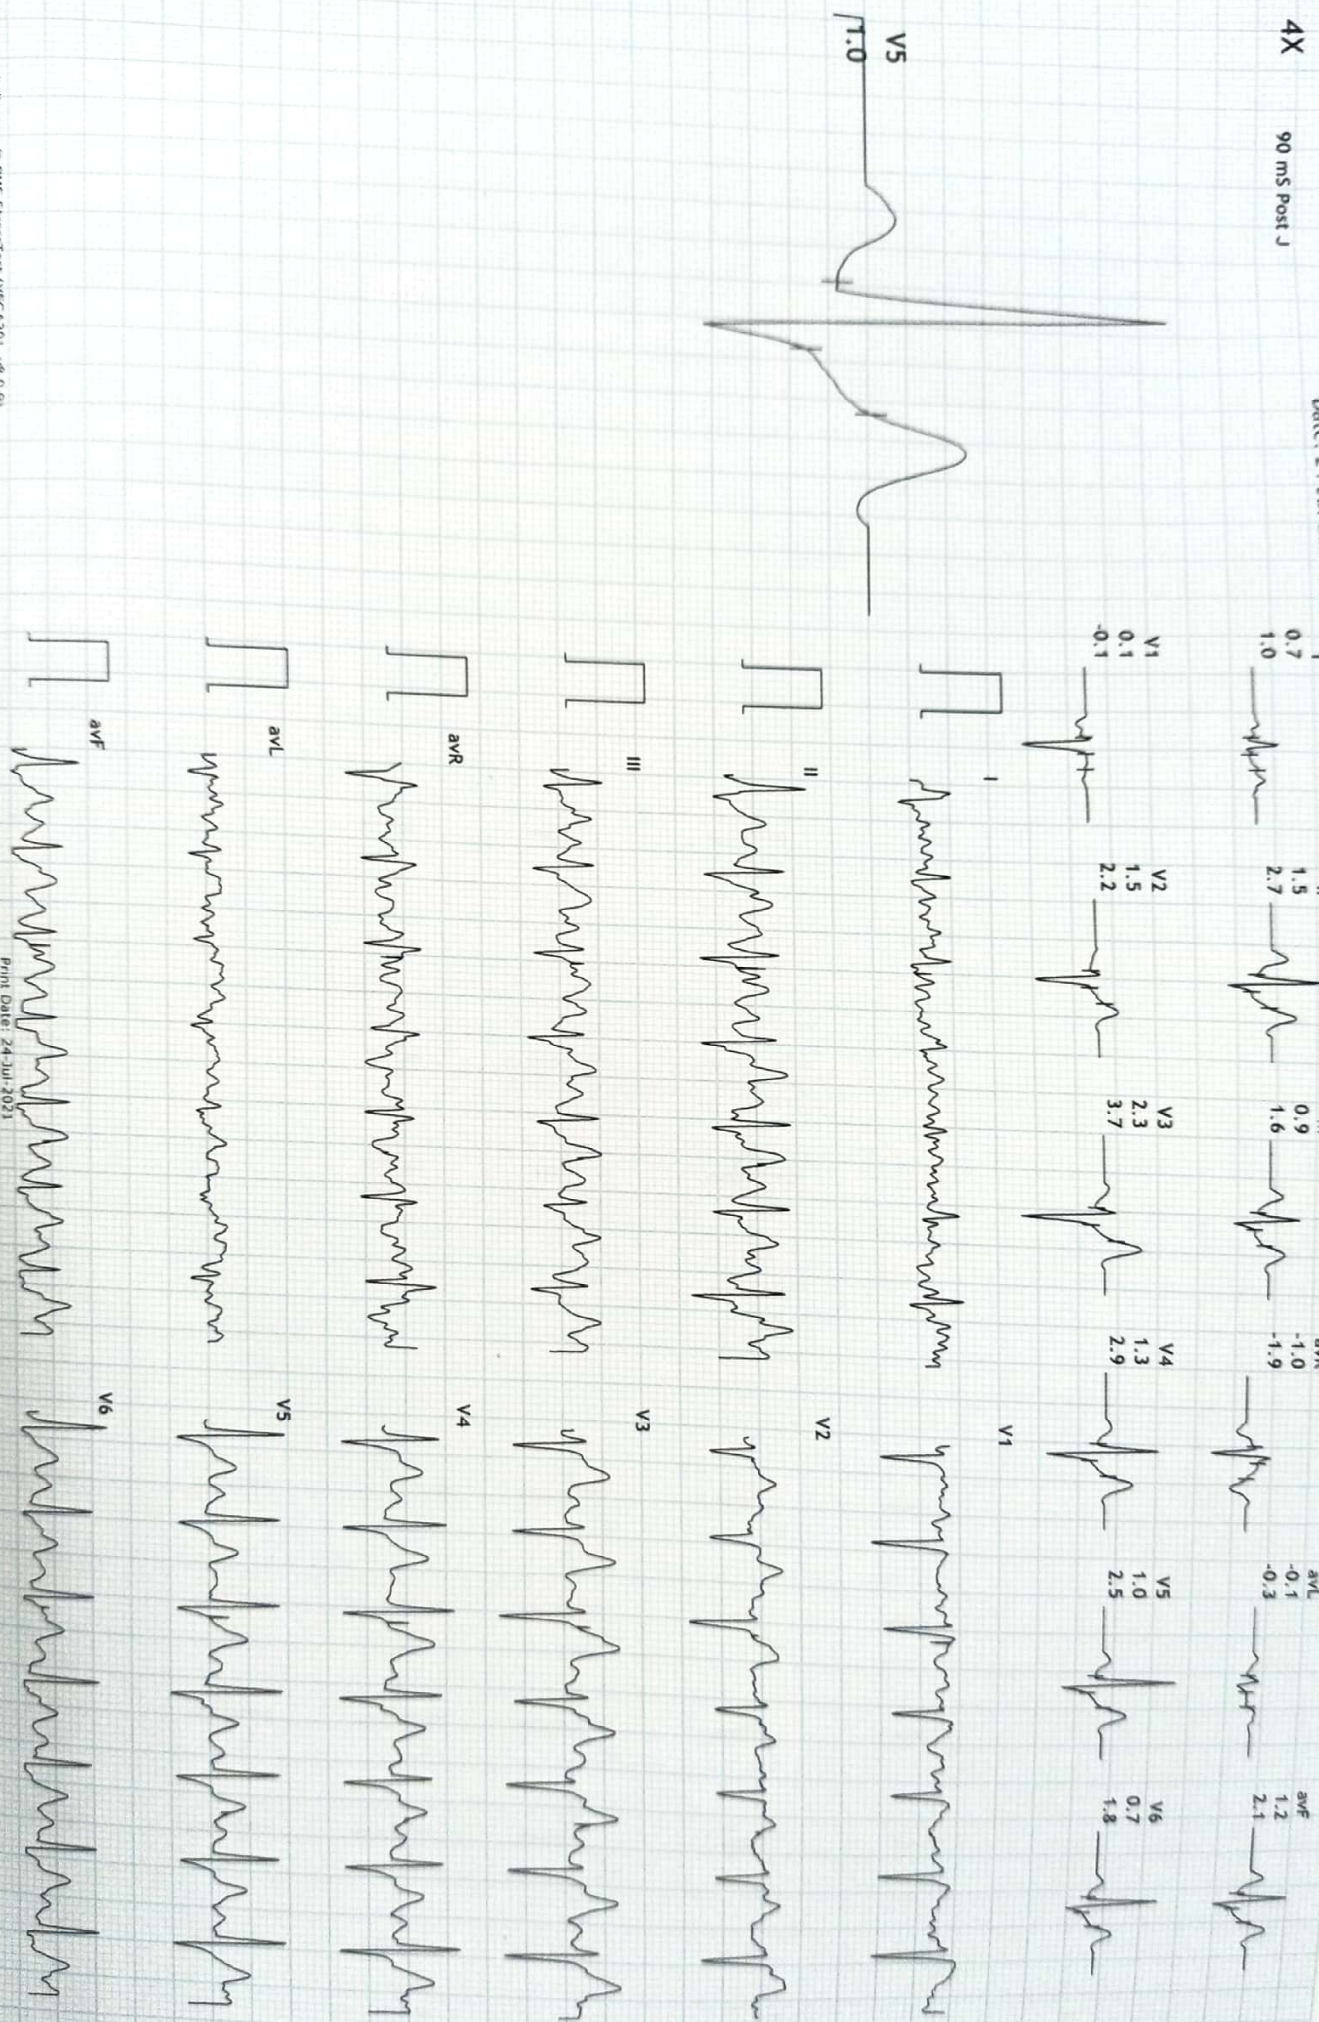 4X
90 mS Post J
V5
1.0
0.7
1.0
1.5
2.7
0.9
1.6
-1.0
-1.9
avL
-0.1
-0.3
avF
1.2
2.1
V1
0.1
-0.1
V2
1.5
2.2
V3
2.3
3.7
V4
1.3
2.9
V5
1.0
2.5
V6
0.7
1.8
I
V1
II
V2
III
V3
avR
V4
avL
V5
avF
V6
Print Date: 24-Jul-2021